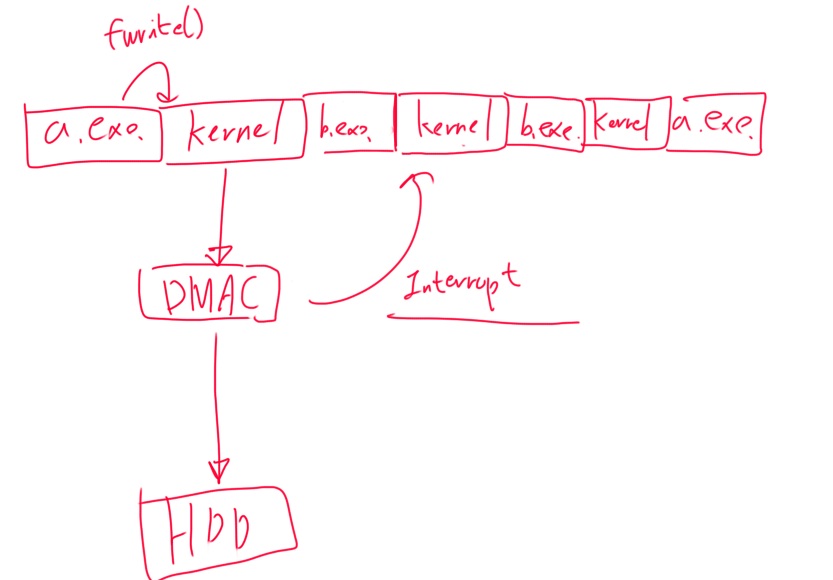 fwrite()
a.exe. kernel b.exe. kernel b.exe. kernel a.exe.
DMAC
Interrupt
HDD